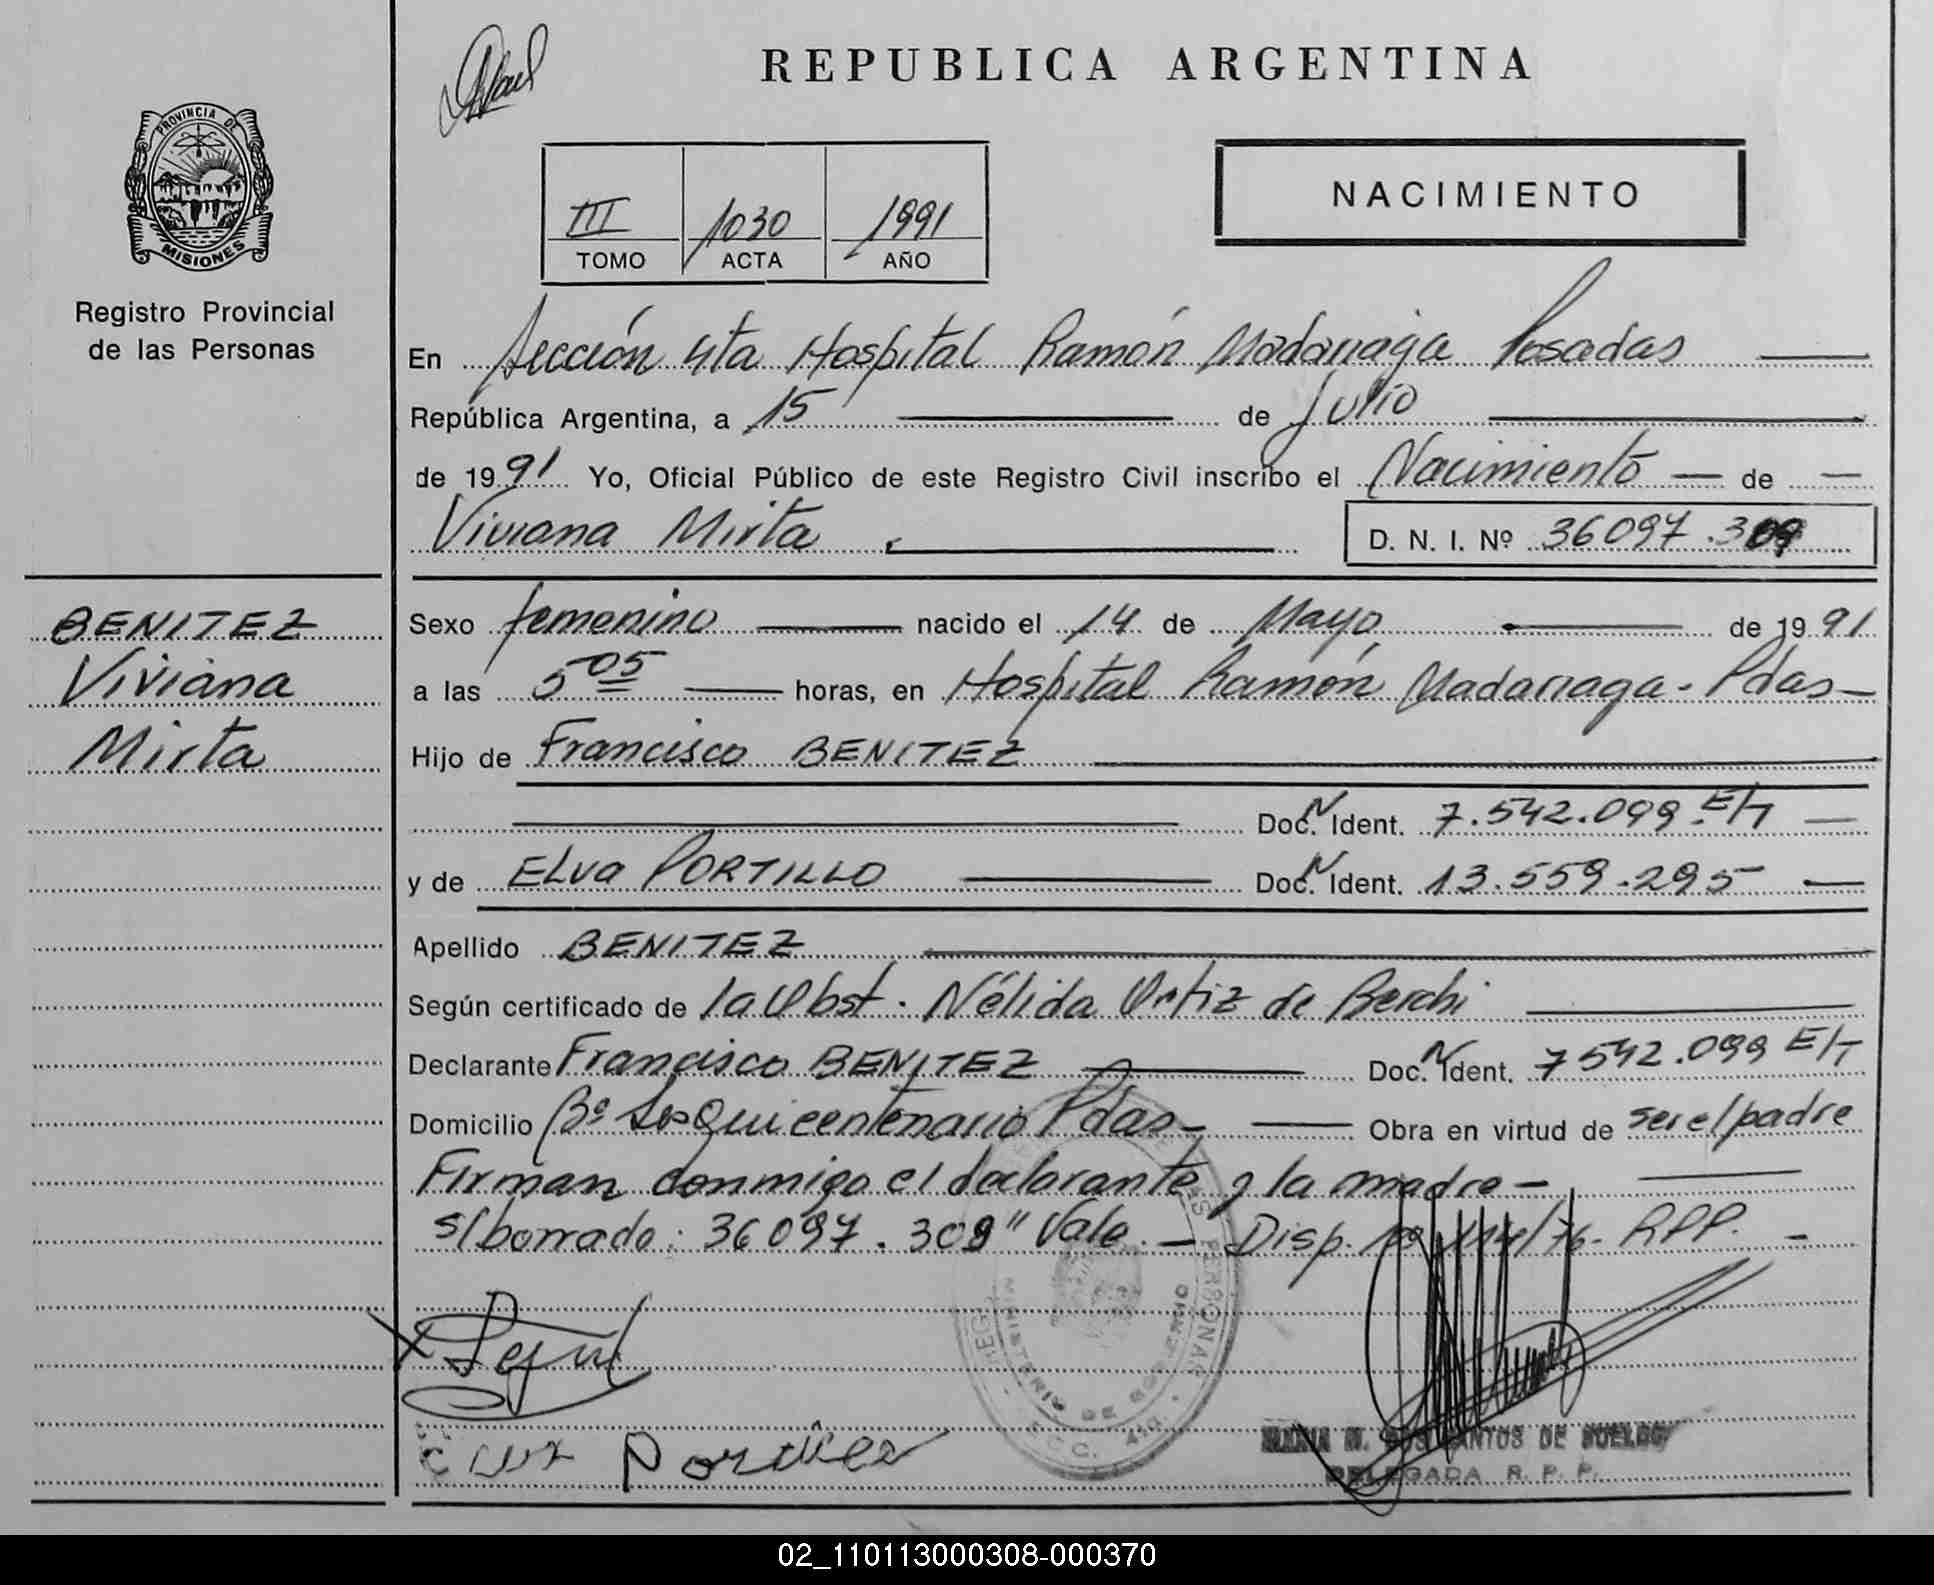 REPUBLICA ARGENTINA
PROVINCIA DE
MISIONES
Registro Provincial
de las Personas
III 1030 1991
TOMO ACTA AÑO
NACIMIENTO
En Sección 4ta Hospital Ramón Madariaga Posadas
República Argentina, a 15 de Julio
de 1991 Yo, Oficial Público de este Registro Civil inscribo el Nacimiento de
Viviana Mirta
D. N. I. Nº 36097.309
BENITEZ
Viviana
Mirta
Sexo femenino nacido el 14 de Mayo de 1991
a las 5 05 horas, en Hospital Ramón Madariaga - Pdas -
Hijo de Francisco BENITEZ
Doc. N Ident. 7.542.099 E/T
y de ELva PORTILLO Doc. N Ident. 13.559.295
Apellido BENITEZ
Según certificado de la Obst. Nélida Ortiz de Berchi
Declarante Francisco BENITEZ Doc. N Ident. 7542.099 E/T
Domicilio Bº Sesquicentenario Pdas - Obra en virtud de ser el padre
Firman conmigo el declarante y la madre -
s/borrado: 36097.309" Vale. - Disp. 114/76 - RPP. -
MINISTERIO DE GOBIERNO
DOS SANTOS DE
DELEGADA R. P. P.
02_110113000308-000370